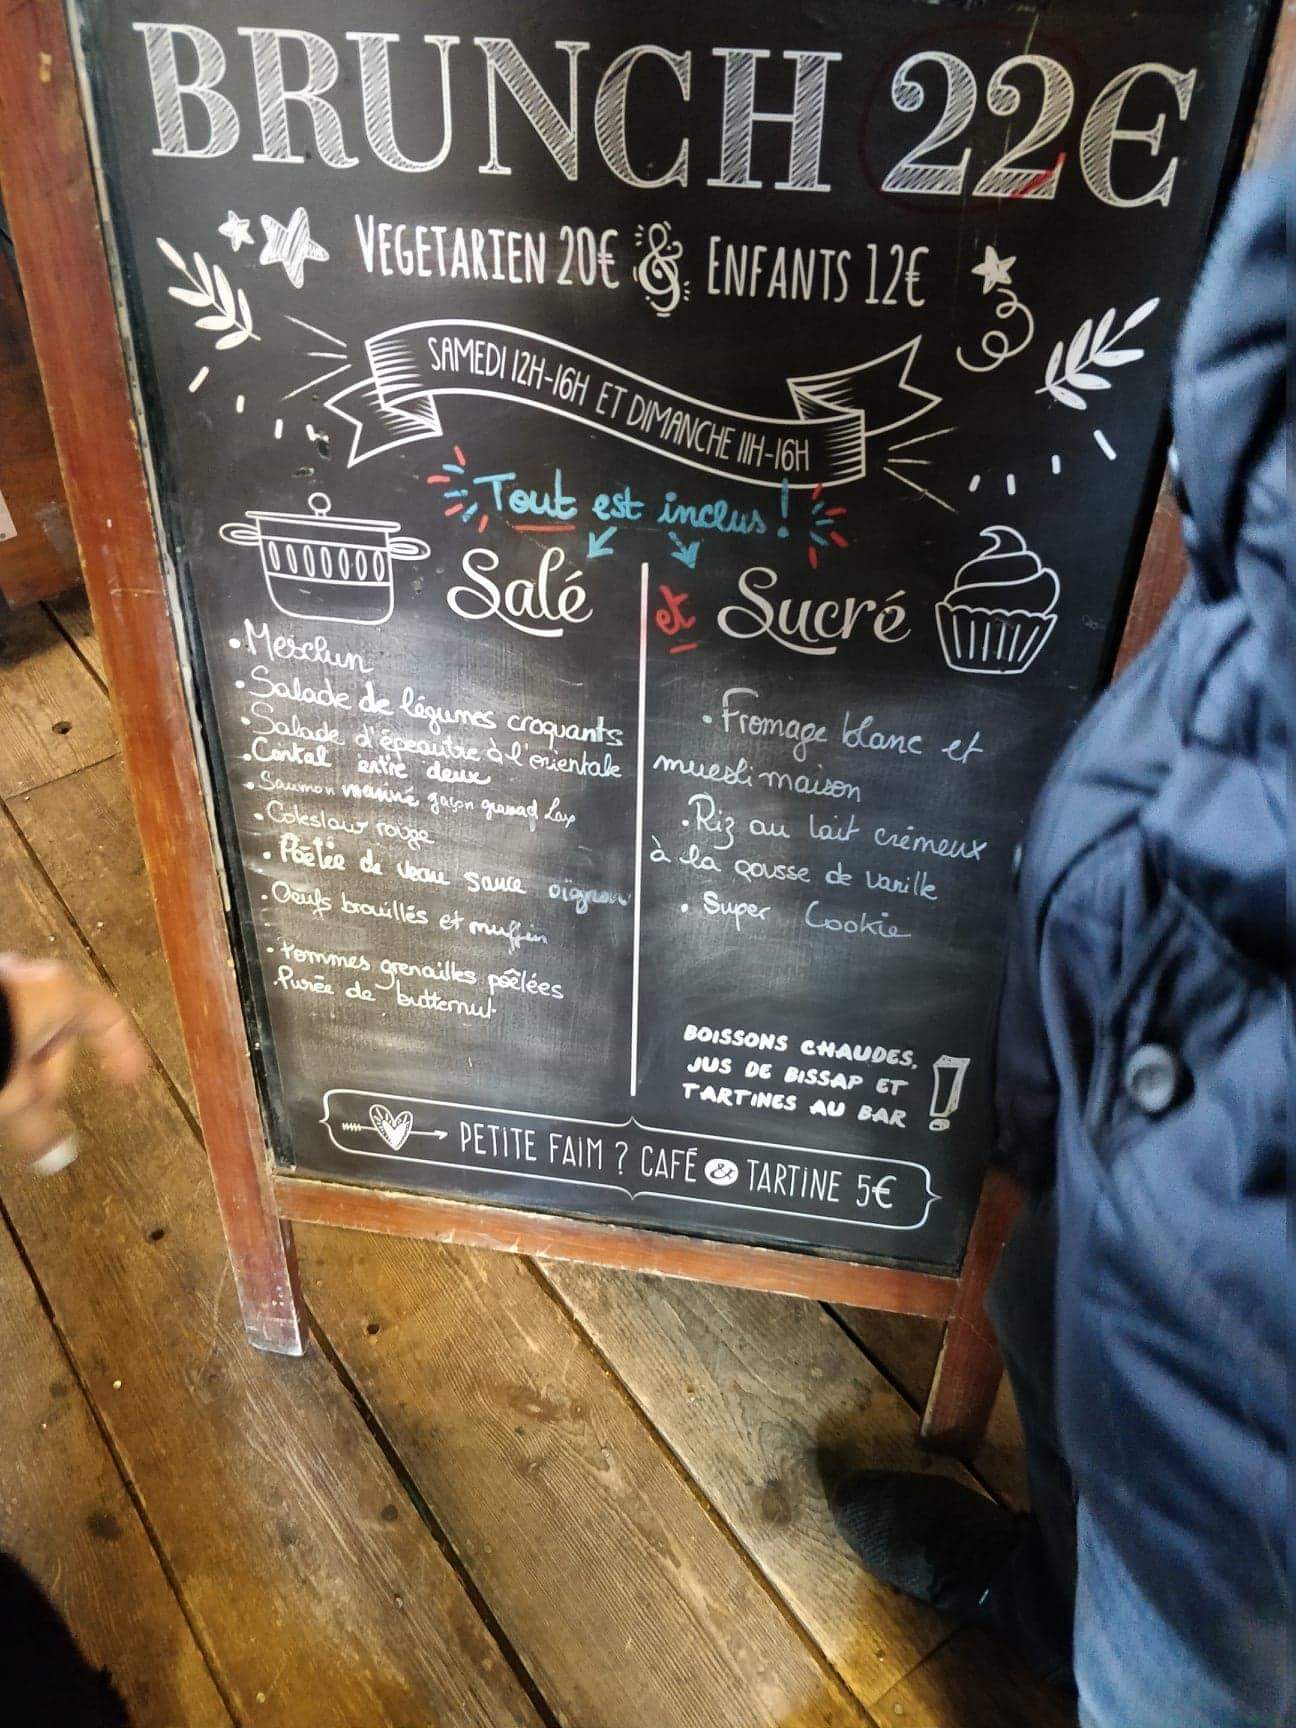 BRUNCH 22€
VEGETARIEN 20€ & ENFANTS 12€
SAMEDI 12H-16H ET DIMANCHE 11H-16H
Tout est inclus !
Salé et Sucré
• Mesclun
• Salade de légumes croquants
• Salade d'épeautre à l'orientale
• Cantal entre deux
• Saumon mariné façon gravad lax
• Coleslaw rouge
• Poêlée de veau sauce oignon
• Oeufs brouillés et muffin
• Pommes grenailles poêlées
• Purée de butternut
• Fromage blanc et
muesli maison
• Riz au lait crémeux
à la gousse de vanille
• Super Cookie
BOISSONS CHAUDES,
JUS DE BISSAP ET
TARTINES AU BAR !
PETITE FAIM ? CAFÉ & TARTINE 5€